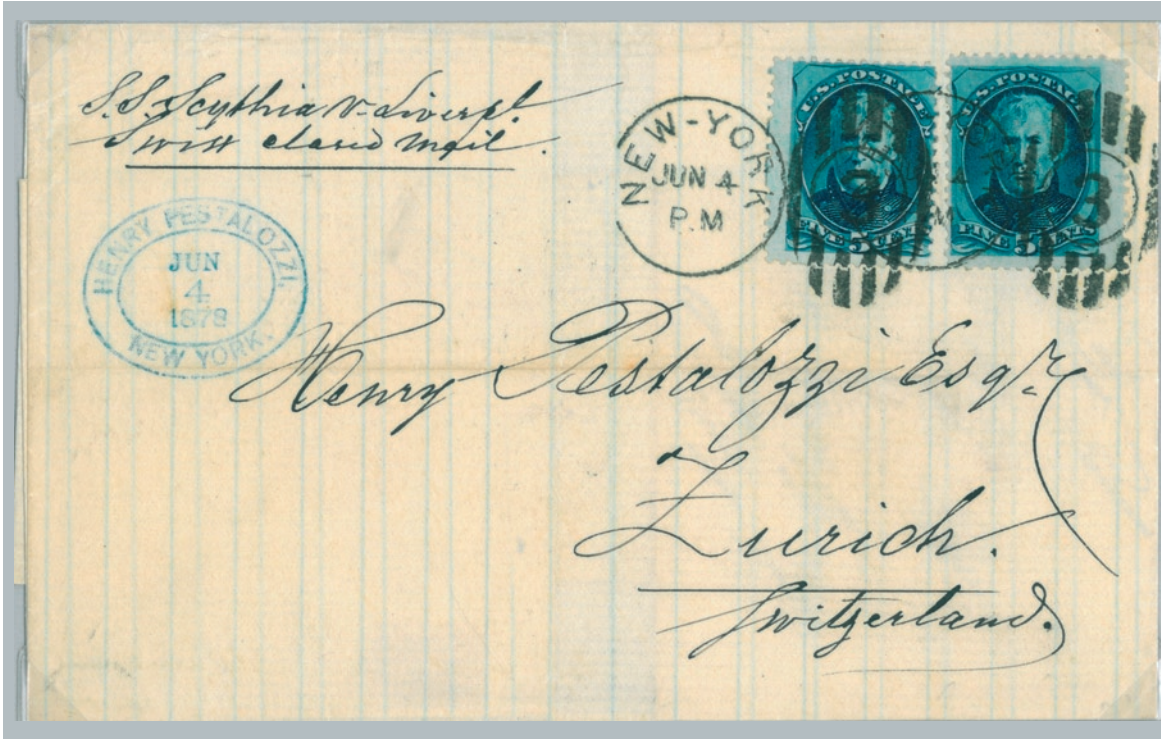 S.S. Scythia v. Liverpl.
Swiss closed Mail.
NEW-YORK
JUN 4
P.M
U.S. POSTAGE
FIVE 5 CENTS
U.S. POSTAGE
FIVE 5 CENTS
3
3
HENRY PESTALOZZI,
JUN
4
1878
NEW YORK.
Henry Pestalozzi Esqr.
Zurich.
Switzerland.